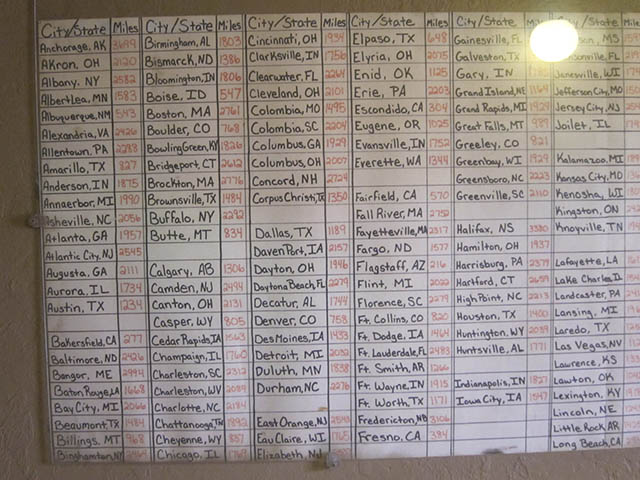 City/State Miles City/State Miles City/State Miles City/State Miles City/State City/State Miles
Anchorage, AK 3699 Birmingham, AL 1803 Cincinnati, OH 1934 Elpaso, TX 648 Gainesville, FL
Akron, OH 2120 Bismarck, ND 1386 Clarksville, IN 1756 Elyria, OH 2075 Galveston, TX
Albany, NY 2582 Bloomington, IN 1806 Clearwater, FL 2264 Enid, OK 1125 Gary, IN Janesville, WI
Albert Lea, MN 1583 Boise, ID 547 Cleveland, OH 2101 Erie, PA 2203 Grand Island, NE 1164 Jefferson City, MO
Albuquerque, NM 543 Boston, MA 2761 Colombia, MO 1495 Escondido, CA 304 Grand Rapids, MI 1929 Jersey City, NJ
Alexandria, VA 2426 Boulder, CO 768 Colombia, SC 2204 Eugene, OR 1025 Great Falls, MT 989 Joilet, IL
Allentown, PA 2288 Bowling Green, KY 1826 Columbus, GA 1929 Evansville, IN 1752 Greeley, CO 821
Amarillo, TX 827 Bridgeport, CT 2612 Columbus, OH 2007 Everette, WA 1344 Greenbay, WI 1929 Kalamazoo, MI
Anderson, IN 1875 Brockton, MA 2776 Concord, NH 2724 Greensboro, NC 2223 Kansas City, MO
Annaerbor, MI 1990 Brownsville, TX 1484 Corpus Christi, TX 1350 Fairfield, CA 570 Greenville, SC 2110 Kenosha, WI
Asheville, NC 2056 Buffalo, NY 2292 Fall River, MA 2752 Kingston, ON
Atlanta, GA 1957 Butte, MT 834 Dallas, TX 1189 Fayetteville, MA 2317 Halifax, NS 3380 Knoyville, TN
Atlantic City, NJ 2545 DavenPort, IA 2157 Fargo, ND 1577 Hamilton, OH 1937
Augusta, GA 2111 Calgary, AB 1306 Dayton, OH 1946 Flagstaff, AZ 216 Harrisburg, PA 2377 Lafayette, LA
Aurora, IL 1734 Camden, NJ 2494 Daytona Beach, FL 2279 Flint, MI 2022 Hartford, CT 2659 Lake Charles, IL
Austin, TX 1234 Canton, OH 2131 Decatur, AL 1744 Florence, SC 2279 High Point, NC 2213 Landcaster, PA
Casper, WY 805 Denver, CO 758 Ft. Collins, CO 820 Houston, TX 1400 Lansing, MI
Bakersfield, CA 277 Cedar Rapids, IA 1563 Des Moines, IA 1433 Ft. Dodge, IA 1464 Huntington, WV 2039 Laredo, TX
Baltimore, ND 2426 Champaign, IL 1760 Detroit, MI 2032 Ft. Lauderdale, FL 2483 Huntsville, AL 1771 Las Vegas, NV
Bangor, ME 2994 Charleston, SC 2312 Duluth, MN 1838 Ft. Smith, AR 1266 Lawrence, KS
Baton Rouge, LA 1668 Charleston, WV 2089 Durham, NC 2276 Ft. Wayne, IN 1915 Indianapolis, IN 1827 Lawton, OK
Bay City, MI 2066 Charlotte, NC 2184 Ft. Worth, TX 1171 Iowa City, IA 1547 Lexington, KY
Beaumont, TX 1484 Chattanooga, TN 1892 East Orange, NJ 2543 Fredericton, NB 3106 Lincoln, NE
Billings, MT 968 Cheyenne, WY 857 Eau Claire, WI 1765 Fresno, CA 384 Little Rock, AR
Binghamton, NY Chicago, IL Elizabeth, NJ Long Beach, CA